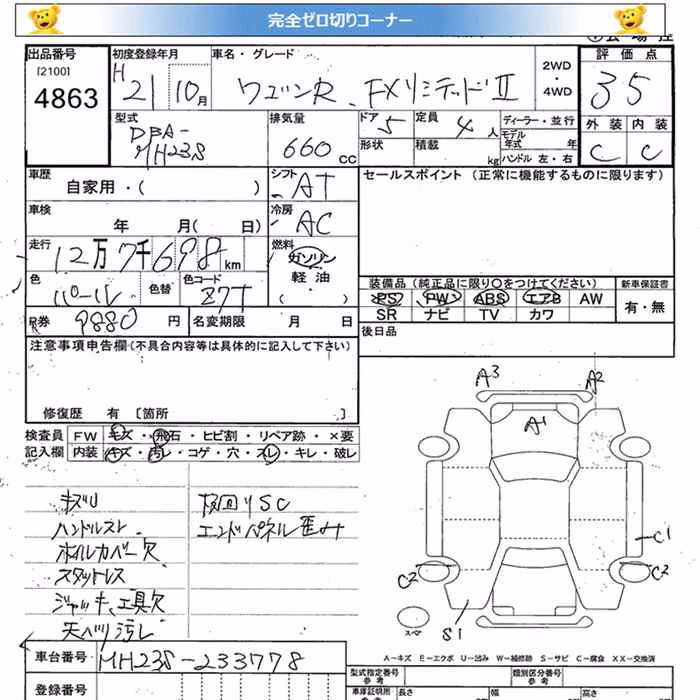 完全ゼロ切りコーナー
出品番号 初度登録年月 車名・グレード 2WD・4WD 評価点
[2100] 4863 H21 10月 ワゴンR FXリミテッドII 35
型式 排気量 ドア 定員 ディーラー・並行 外装 内装
DBA-MH23S 660cc 5 4人 モデル年式 年 C C
形状 積載 kg ハンドル 左・右
車歴 シフト セールスポイント (正常に機能するものに限ります)
自家用・( ) AT
車検 冷房
年 月(日) AC
走行 燃料
12万7千698km ガソリン
色 色替 色コード 軽油
パール Z7T ・( )
装備品 (純正品に限り○をつけてください) 新車保証書
PS PW ABS エアB AW 有・無
SR ナビ TV カワ
R券 9880円 名変期限 月 日
後日品
注意事項申告欄 (不具合内容等は具体的に記入して下さい)
修復歴 有 [箇所 ]
検査員 FW キズ・飛石・ヒビ割・リペア跡・×要
記入欄 内装 キズ・汚レ・コゲ・穴・スレ・キレ・破レ
A3 A2
A1
キズU
ハンドルスレ
ホイルカバー欠
スタットレス
ジャッキ、工具欠
天ベリ汚レ
エンドパネル歪み
C1
C2 C2
S1
スペア
A-キズ E-エクボ U-凹み W-補修跡 S-サビ C-腐食 XX-交換済
車台番号 MH23S-233778
型式指定番号 参考 類別区分番号 参考
登録番号
車庫証明用 参考 長さ 幅 高さ